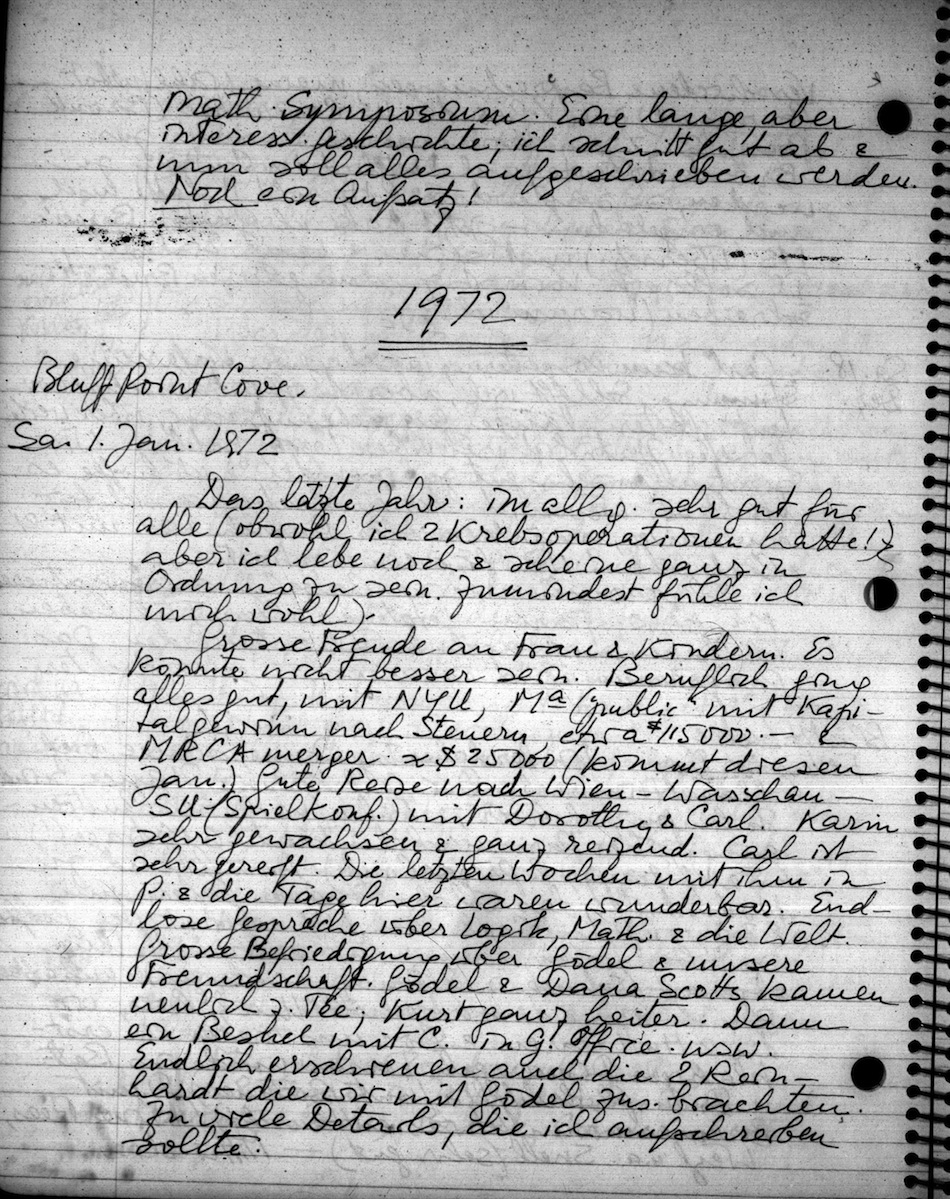 Math. Symposium. Eine lange, aber
interess. Geschichte; ich schnitt gut ab &
nun soll alles aufgeschrieben werden.
Noch ein Aufsatz!
1972
Bluff Point Cove.
Sa. 1. Jan. 1972
Das letzte Jahr: im allg. sehr gut für
alle (obwohl ich 2 Krebsoperationen hatte!,
aber ich lebe noch & scheine ganz in
Ordnung zu sein. Zumindest fühle ich
mich wohl).
Grosse Freude an Frau & Kindern. Es
könnte nicht besser sein. Beruflich ging
alles gut, mit NYU, Ma ("public" mit Kapi-
talgewinn nach Steuern etwa $115000.- &
MRCA merger. ≈ $25000 (kommt diesen
Jan.) Gute Reise nach Wien - Warschau -
SU (Spielkonf.) mit Dorothy & Carl. Karin
sehr gewachsen & ganz reizend. Carl ist
sehr gereift. Die letzten Wochen mit ihm in
P. & die Tage hier waren wunderbar. End-
lose Gespräche über Logik, Math. & die Welt.
Grosse Befriedigung über Gödel & unsere
Freundschaft. Gödel & Dana Scotts kamen
neulich z. Tee; Kurt ganz heiter. Dann
ein Besuch mit C. in G! Office. usw.
Endlich erschienen auch die 2 Rein-
hardt die wir mit Gödel zus. brachten.
Zu viele Details, die ich aufschreiben
sollte.